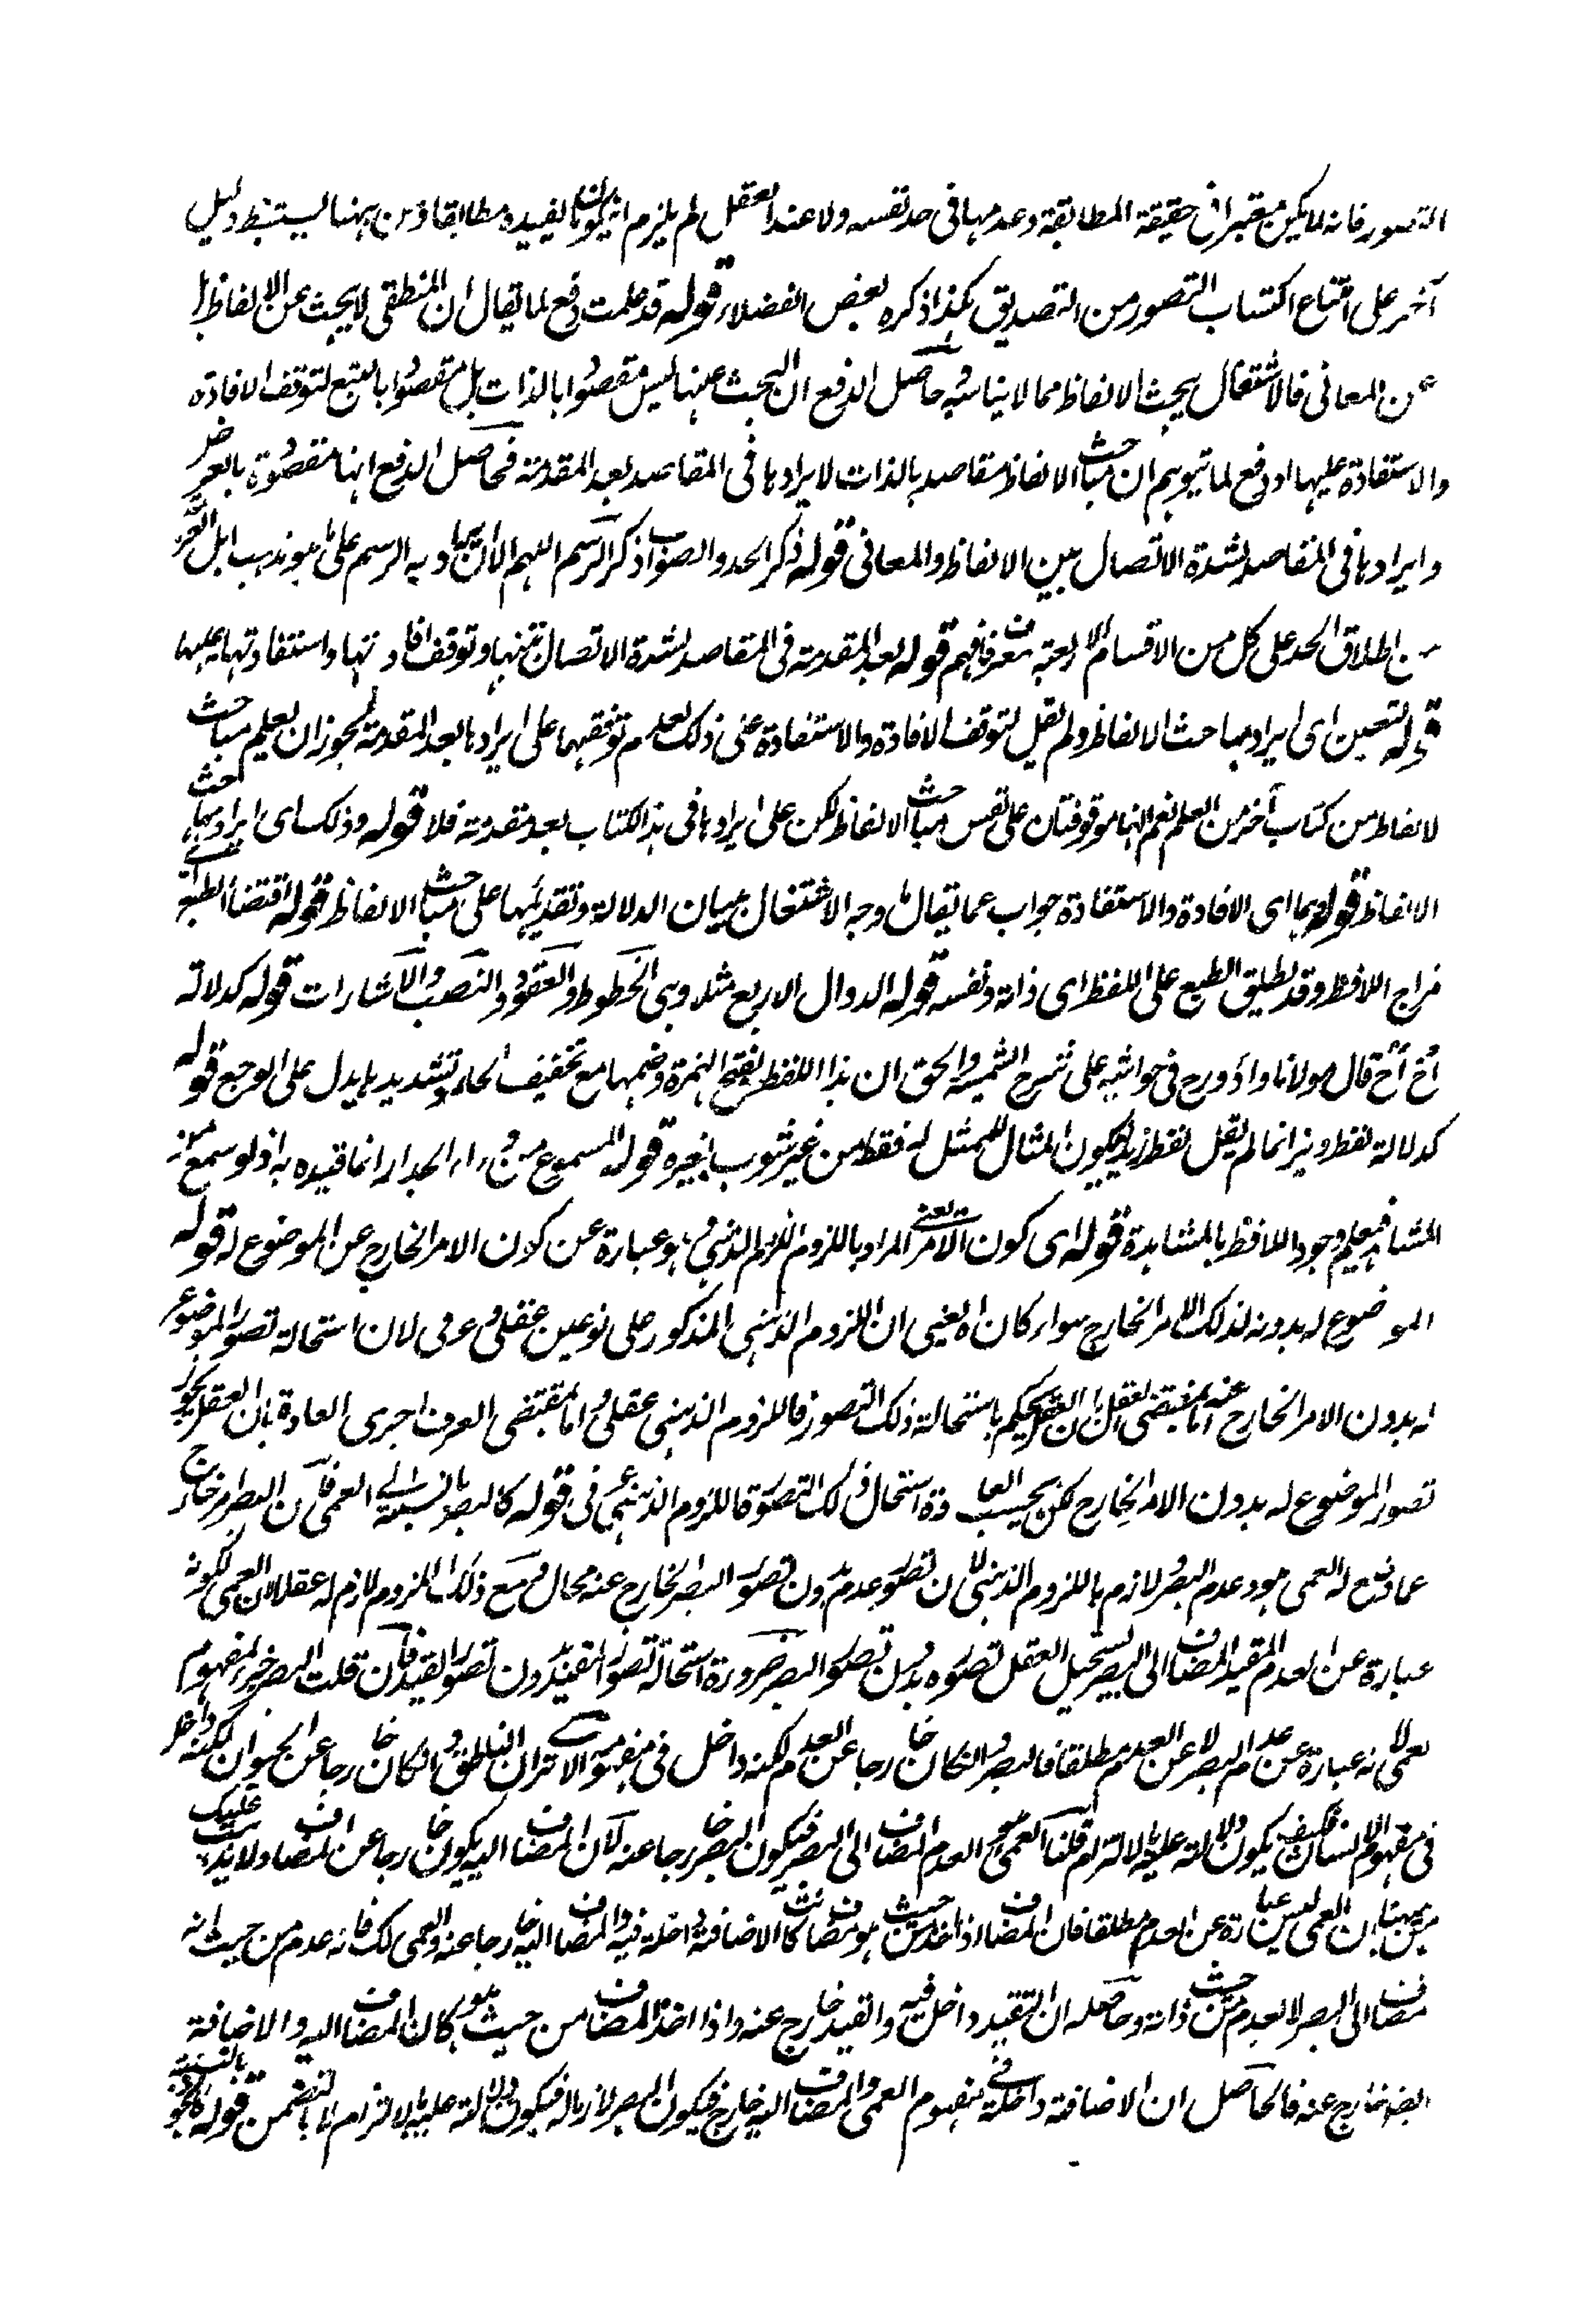 التصور فانه لما يكن معتبرا في حقيقة المطابقة وعدمها في حد نفسه ولا عند العقل لم يلزم ان يكون ما يفيده مطابقا ومن ههنا يستنبط دليل
آخر على امتناع اكتساب التصور من التصديق كذا ذكره بعض الفضلاء قوله قد علمت دفع لما يقال ان المنطقي لا يبحث عن الالفاظ بل
عن المعاني فالاشتغال ببحث الالفاظ مما لا يناسبه حاصل الدفع ان البحث عنها ليس مقصودا بالذات بل مقصودا بالتبع لتوقف الافادة
والاستفادة عليها او دفع لما يتوهم ان مباحث الالفاظ مقاصد بالذات لايرادها في المقاصد بعد المقدمة فحاصل الدفع انها مقصودة بالعرض
وايرادها في المقاصد لشدة الاتصال بين الالفاظ والمعاني قوله ذكر الحد والصواب ذكر الرسم اللهم الا ان يراد به الرسم على ما هو مذهب اهل العربية
من اطلاق الحد على كل من الاقسام الاربعة للمعرف فافهم قوله بعد المقدمة في المقاصد لشدة الاتصال بينها وتوقف افادتها واستفادتها عليها
قوله لتعين اى ايراد مباحث الالفاظ ولم يقل لتوقف الافادة والاستفادة على ذلك لعدم توقفهما على ايرادها بعد المقدمة لجواز ان يعلم مباحث
الالفاظ من كتاب آخر من العلم نعم انهما موقوفتان على نفس مباحث الالفاظ لكن على ايرادها في هذا الكتاب بعد مقدمته فلا قوله وذلك اى ايراد مباحث
الالفاظ قوله بهما اى الافادة والاستفادة جواب عما يقال ما وجه الاشتغال ببيان الدلالة وتقديمها على مباحث الالفاظ قوله اقتضاء الطبع
مزاج اللافظ وقد يطلق الطبع على اللفظ اى ذاته ونفسه قوله الدوال الاربع مثلا وهى الخطوط والعقود والنصب والاشارات قوله كدلالة
أخ أخ قال مولانا داؤد رح في حواشيه على شرح الشمسية والحق ان هذا اللفظ بفتح الهمزة وضمها مع تخفيف الحاء وتشديدها يدل على الوجع قوله
كدلالة لفظ ديز انما لم يقل لفظ زيد ليكون المثال للممثل له فقط من غير شوب بغيره قوله المسموع من وراء الجدار انما قيده به اذ لو سمع من
المشاهد فيعلم وجود اللافظ بالمشاهدة قوله اى كون الامر يعنى المراد باللزوم اللزوم الذهني وهو عبارة عن كون الامر الخارج عن الموضوع له قوله
الموضوع له بدونه لذلك الامر الخارج سواء كان اه يعنى ان اللزوم الذهني المذكور على نوعين عقلي وعرفي لان استحالة تصور الموضوع
له بدون الامر الخارج عنه اما بمقتضى العقل ان العقل يحكم باستحالة ذلك التصور فاللزوم الذهني عقلي واما بمقتضى العرف اجرى العادة بان العقل يجوز
تصور الموضوع له بدون الامر الخارج لكن بحسب العادة استحال ذلك التصور فاللزوم الذهني عرفي قوله كالبصر بالنسبة الى العمى فان البصر امر خارج
عما وضع له العمى هو عدم البصر لازم باللزوم الذهني لان تصور عدم بدون تصور البصر الخارج عنه محال ومع ذلك اللزوم لازم له عقلا لان العمى لكونه
عبارة عن العدم المقيد المضاف الى البصر يستحيل العقل تصوره بدون تصور البصر ضرورة استحالة تصور المقيد بدون تصور القيد فان قلت البصر جزء لمفهوم
العمى لانه عبارة عن عدم البصر لا عن العدم مطلقا فالبصر وان كان خارجا عن العدم لكنه داخل في مفهومه الا ترى ان الناطق وان كان خارجا عن الحيوان لكنه داخل
في مفهوم الانسان فكيف يكون دلالته عليه بالالتزام قلنا العمى هو العدم المضاف الى البصر فيكون البصر خارجا عنه لان المضاف اليه يكون خارجا عن المضاف ولا يذهب عليك
من ههنا ان العمى ليس عبارة عن العدم مطلقا فان المضاف اذا اخذ من حيث هو مضاف كانت الاضافة داخلة فيه والمضاف اليه خارجا عنه والعمى كك فانه عدم من حيث انه
مضاف الى البصر لا العدم من حيث ذاته وحاصله ان التقييد داخل فيه والقيد خارج عنه واذا اخذ المضاف من حيث هو كان المضاف اليه والاضافة
ايضا خارج عنه فالحاصل ان الاضافة داخلة في مفهوم العمى والمضاف اليه خارج فيكون البصر لازما له فيكون دلالته عليه بالالتزام لا بالتضمن قوله كالجود بالنسبة